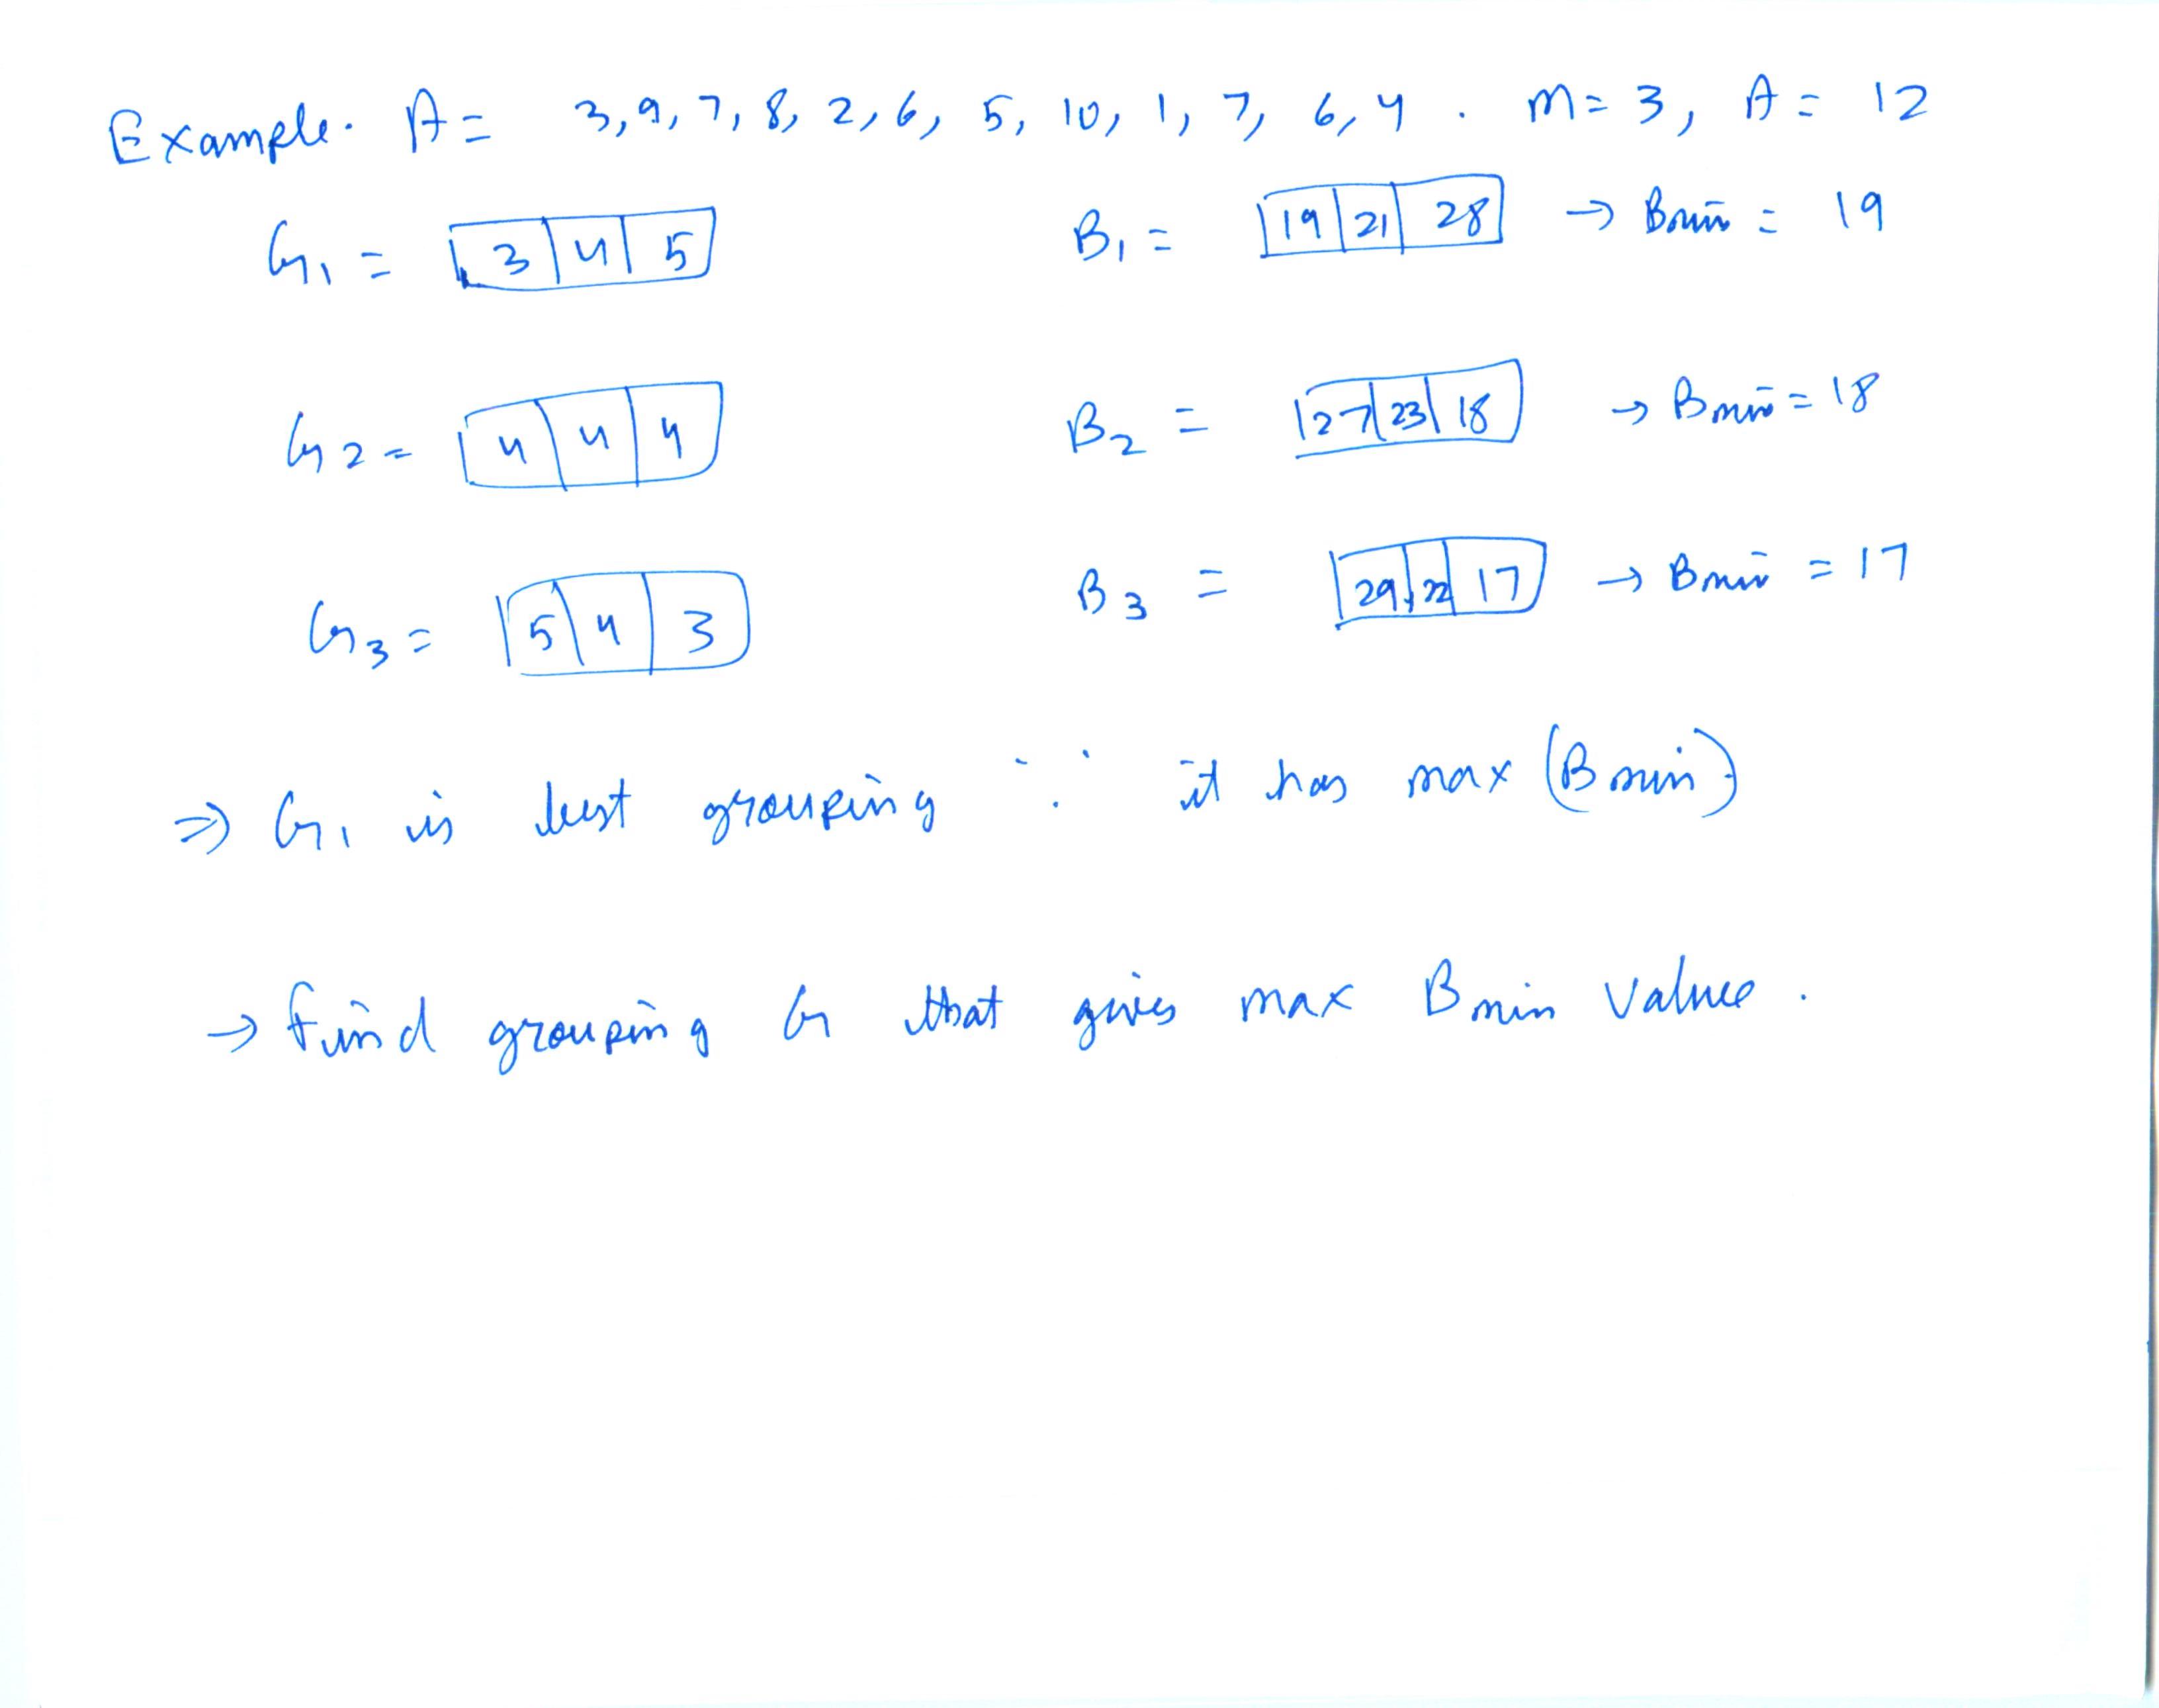 Example. A = 3, 9, 7, 8, 2, 6, 5, 10, 1, 7, 6, 4 . M = 3, A = 12
G1 = 3 4 5 B1 = 19 21 28 → Bmin = 19
G2 = 4 4 4 B2 = 27 23 18 → Bmin = 18
G3 = 5 4 3 B3 = 29 22 17 → Bmin = 17
⇒ G1 is best grouping ∵ it has max (Bmin)
→ Find grouping G that gives max Bmin value .